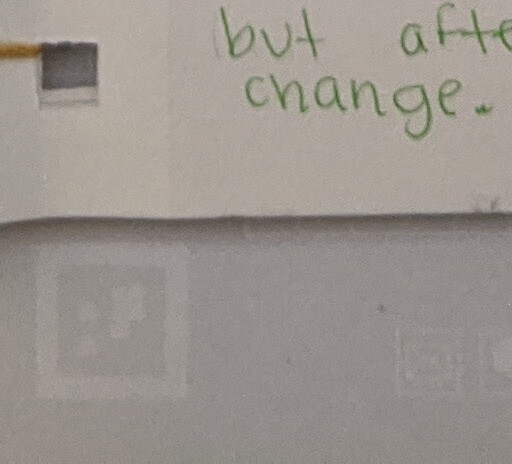 but afte
change.